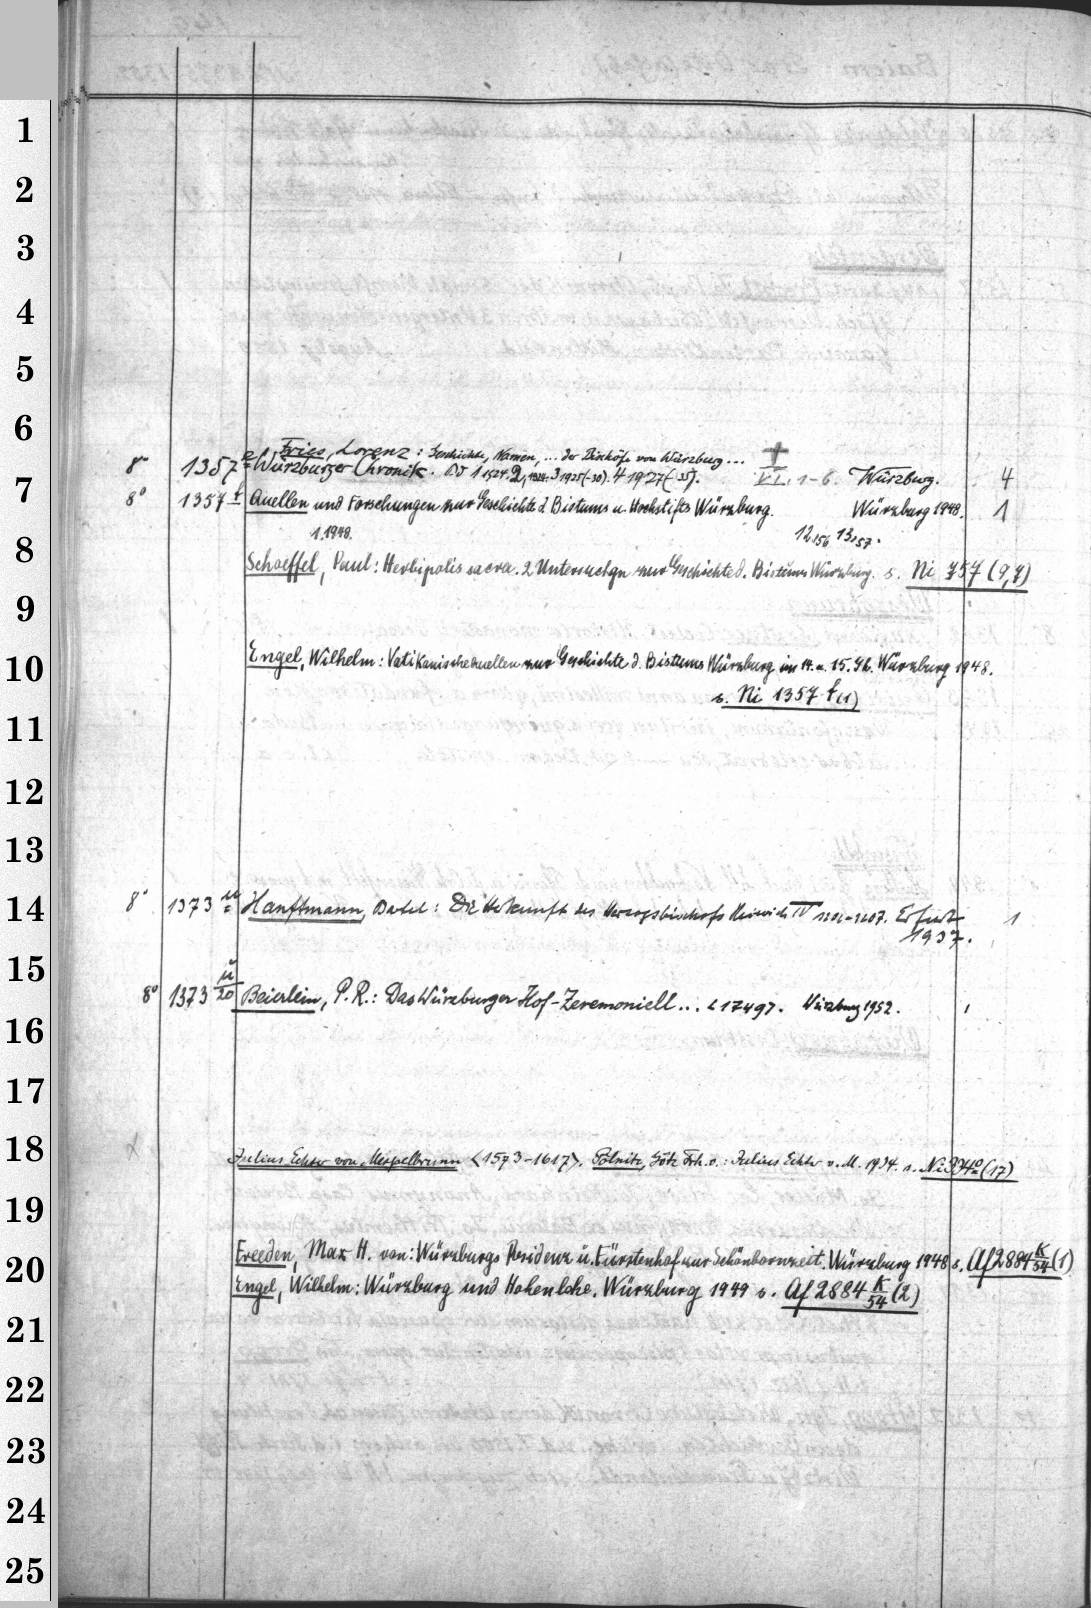 1
2
3
4
5
6
7
8
9
10
11
12
13
14
15
16
17
18
19
20
21
22
23
24
25
Fries, Lorenz: Geschichte, Namen, ... der Bischöfe von Würzburg ...
8° 1357 e Würzburger Chronik. Bd 1 1924. 2, 3 1925(-30). 4 1927(-35). VI, 1-6. Würzburg. 4
8° 1357 f Quellen und Forschungen zur Geschichte d. Bistums u. Hochstifts Würzburg. Würzburg 1948. 1
1,1948. 12,56 13,57.
Schoeffel, Paul: Herbipolis sacra. 2 Untersuchgn zur Geschichte d. Bistums Würzburg. s. Ni 757 (9,7)
Engel, Wilhelm: Vatikanische Quellen zur Geschichte d. Bistums Würzburg im 14. u. 15. Jh. Würzburg 1948.
s. Ni 1357 f (1)
8° 1373 m Hanftmann, Bartel: Die Herkunft des Herzogsbischofs Heinrich IV 1202-1207. Erfurt 1
1937.
8° 1373 ü/20 Beierlein, P. R.: Das Würzburger Hof-Zeremoniell ... <1749>. Würzburg 1952. 1
Julius Echter von Mespelbrunn <1573-1617>. Pölnitz, Götz Frh. v.: Julius Echter v. M. 1934. s. Ni 334 (17)
Freeden, Max H. von: Würzburgs Residenz u. Fürstenhof zur Schönbornzeit. Würzburg 1948 s. Af 2884 K/54 (1)
Engel, Wilhelm: Würzburg und Hohenlohe. Würzburg 1949 s. Af 2884 K/54 (2)